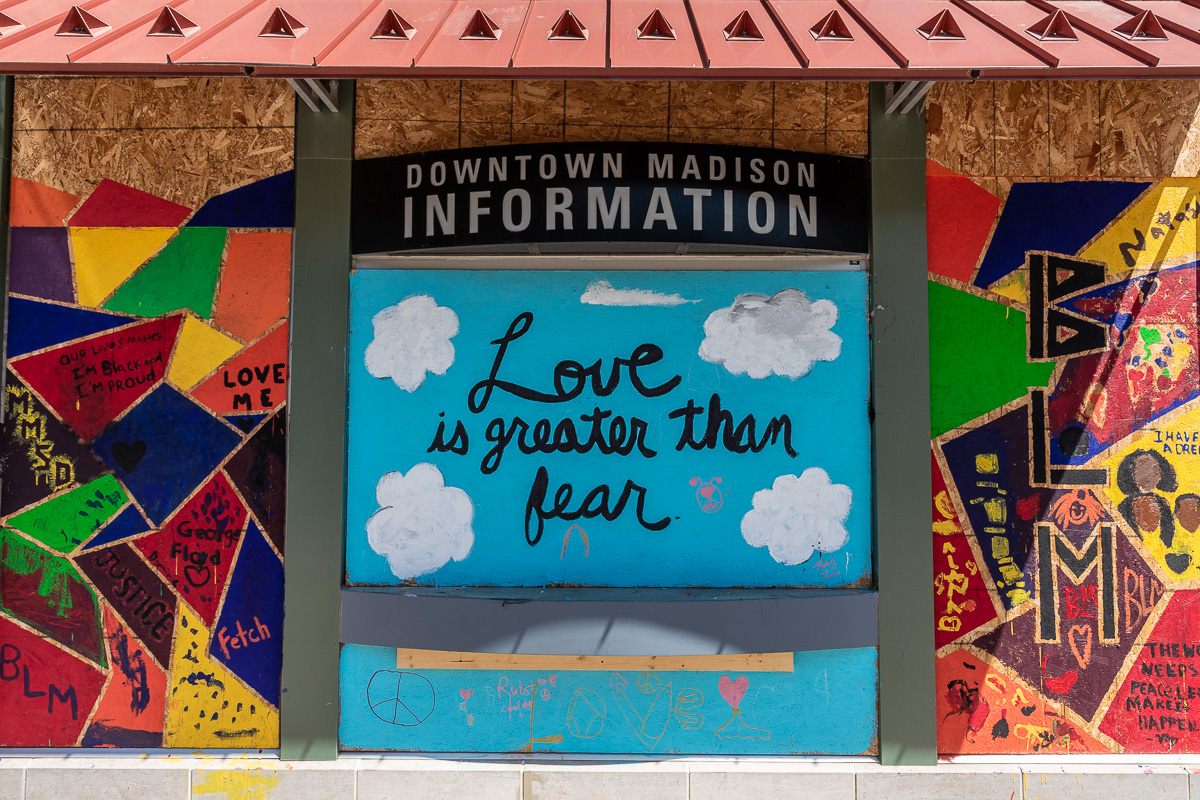 DOWNTOWN MADISON
INFORMATION
Love
is greater than
fear.
OUR Lives Matter
I'M BLACK and
I'M PROUD
LOVE
ME
George
Floyd
JUSTICE
Fetch
BLM
BLM
I HAVE
A DREA
BLM
THE WO
NEEPS
PEACE LE
MAKE I
HAPPEN